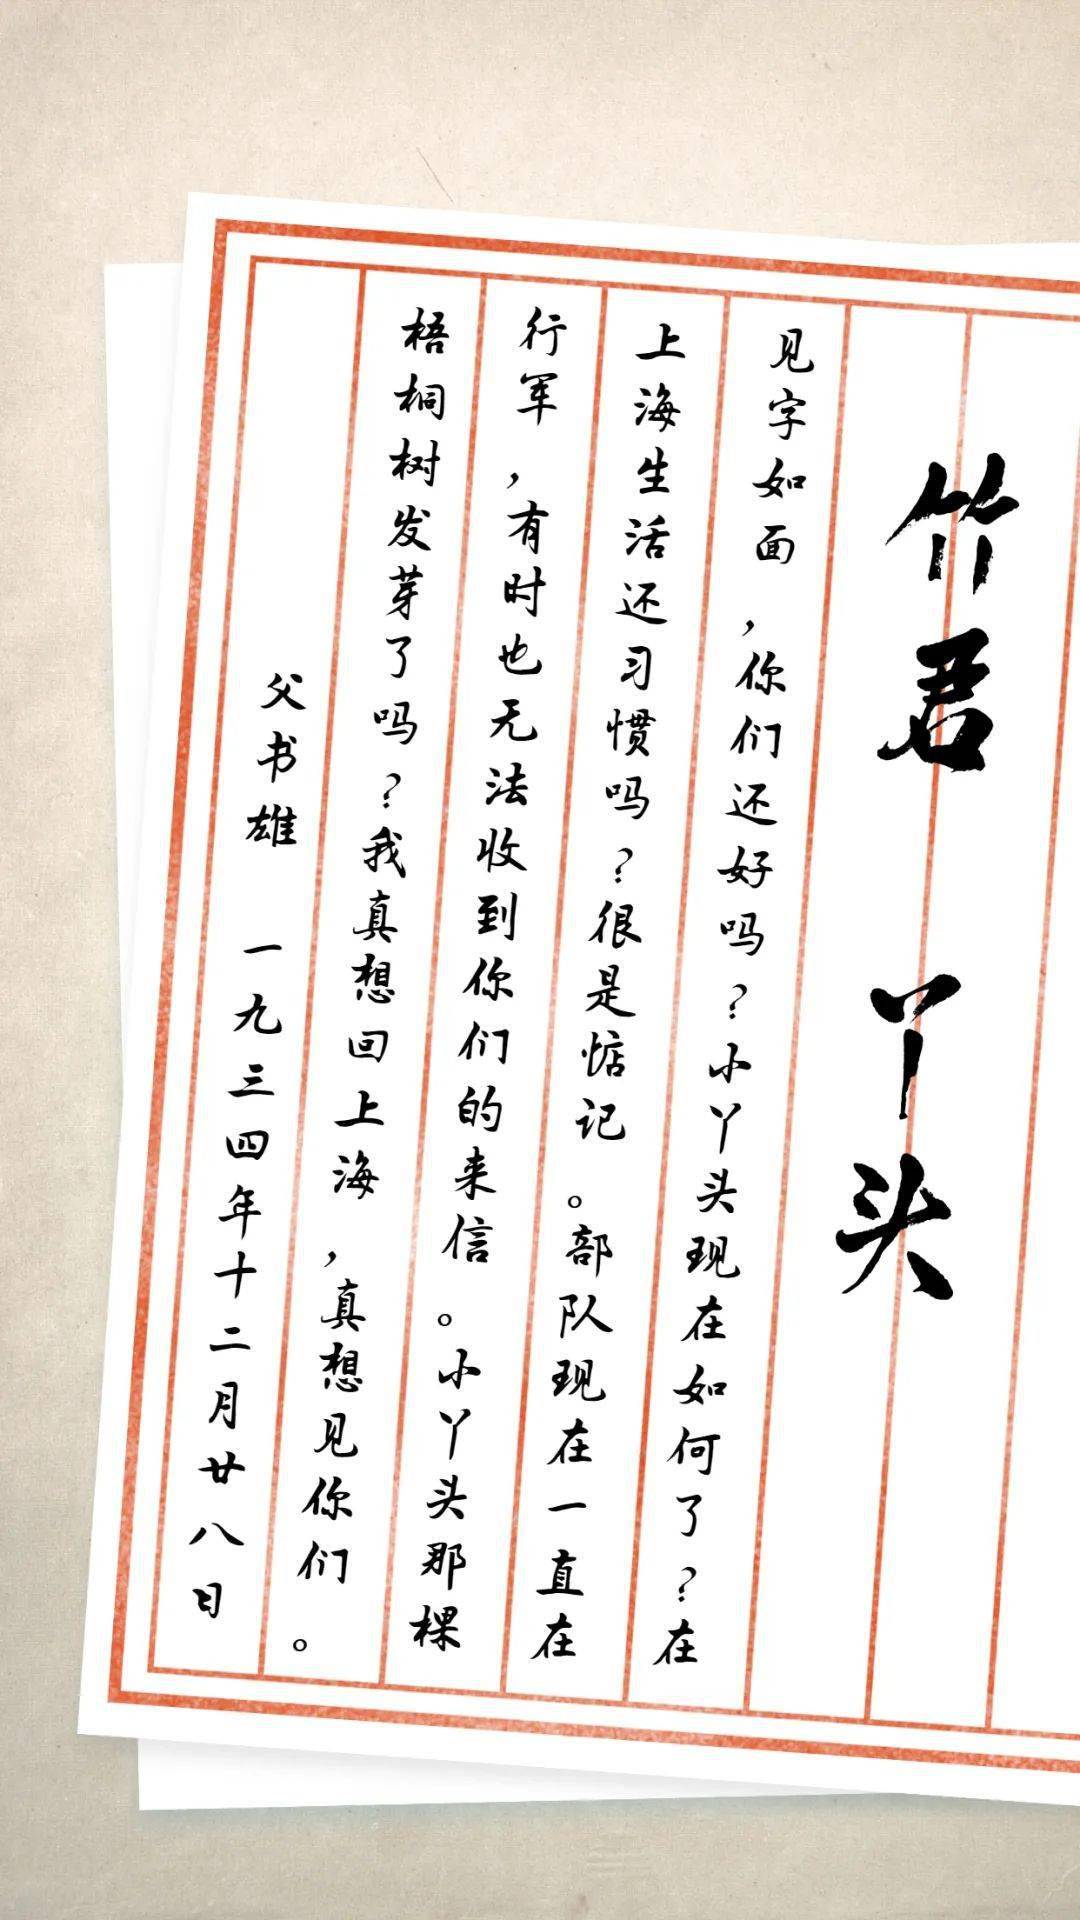 竹君 丫头
见字如面，你们还好吗？小丫头现在如何了？在
上海生活还习惯吗？很是惦记。部队现在一直在
行军，有时也无法收到你们的来信。小丫头那棵
梧桐树发芽了吗？我真想回上海，真想见你们。
父书雄 一九三四年十二月廿八日